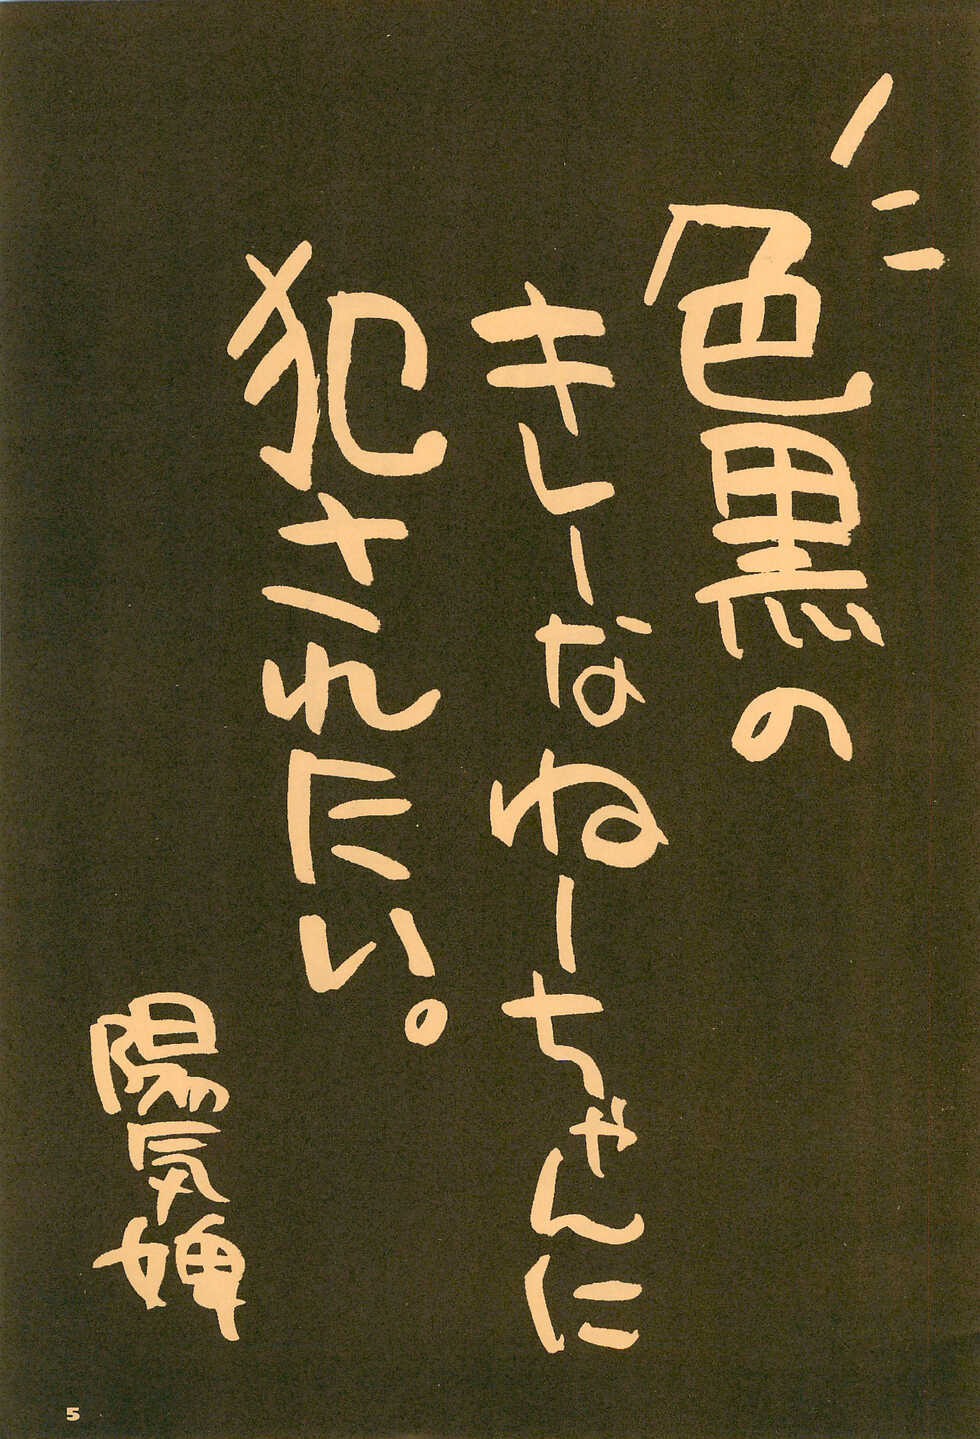 色黒の
キレーなねーちゃんに
犯されたい。
陽気婢
5